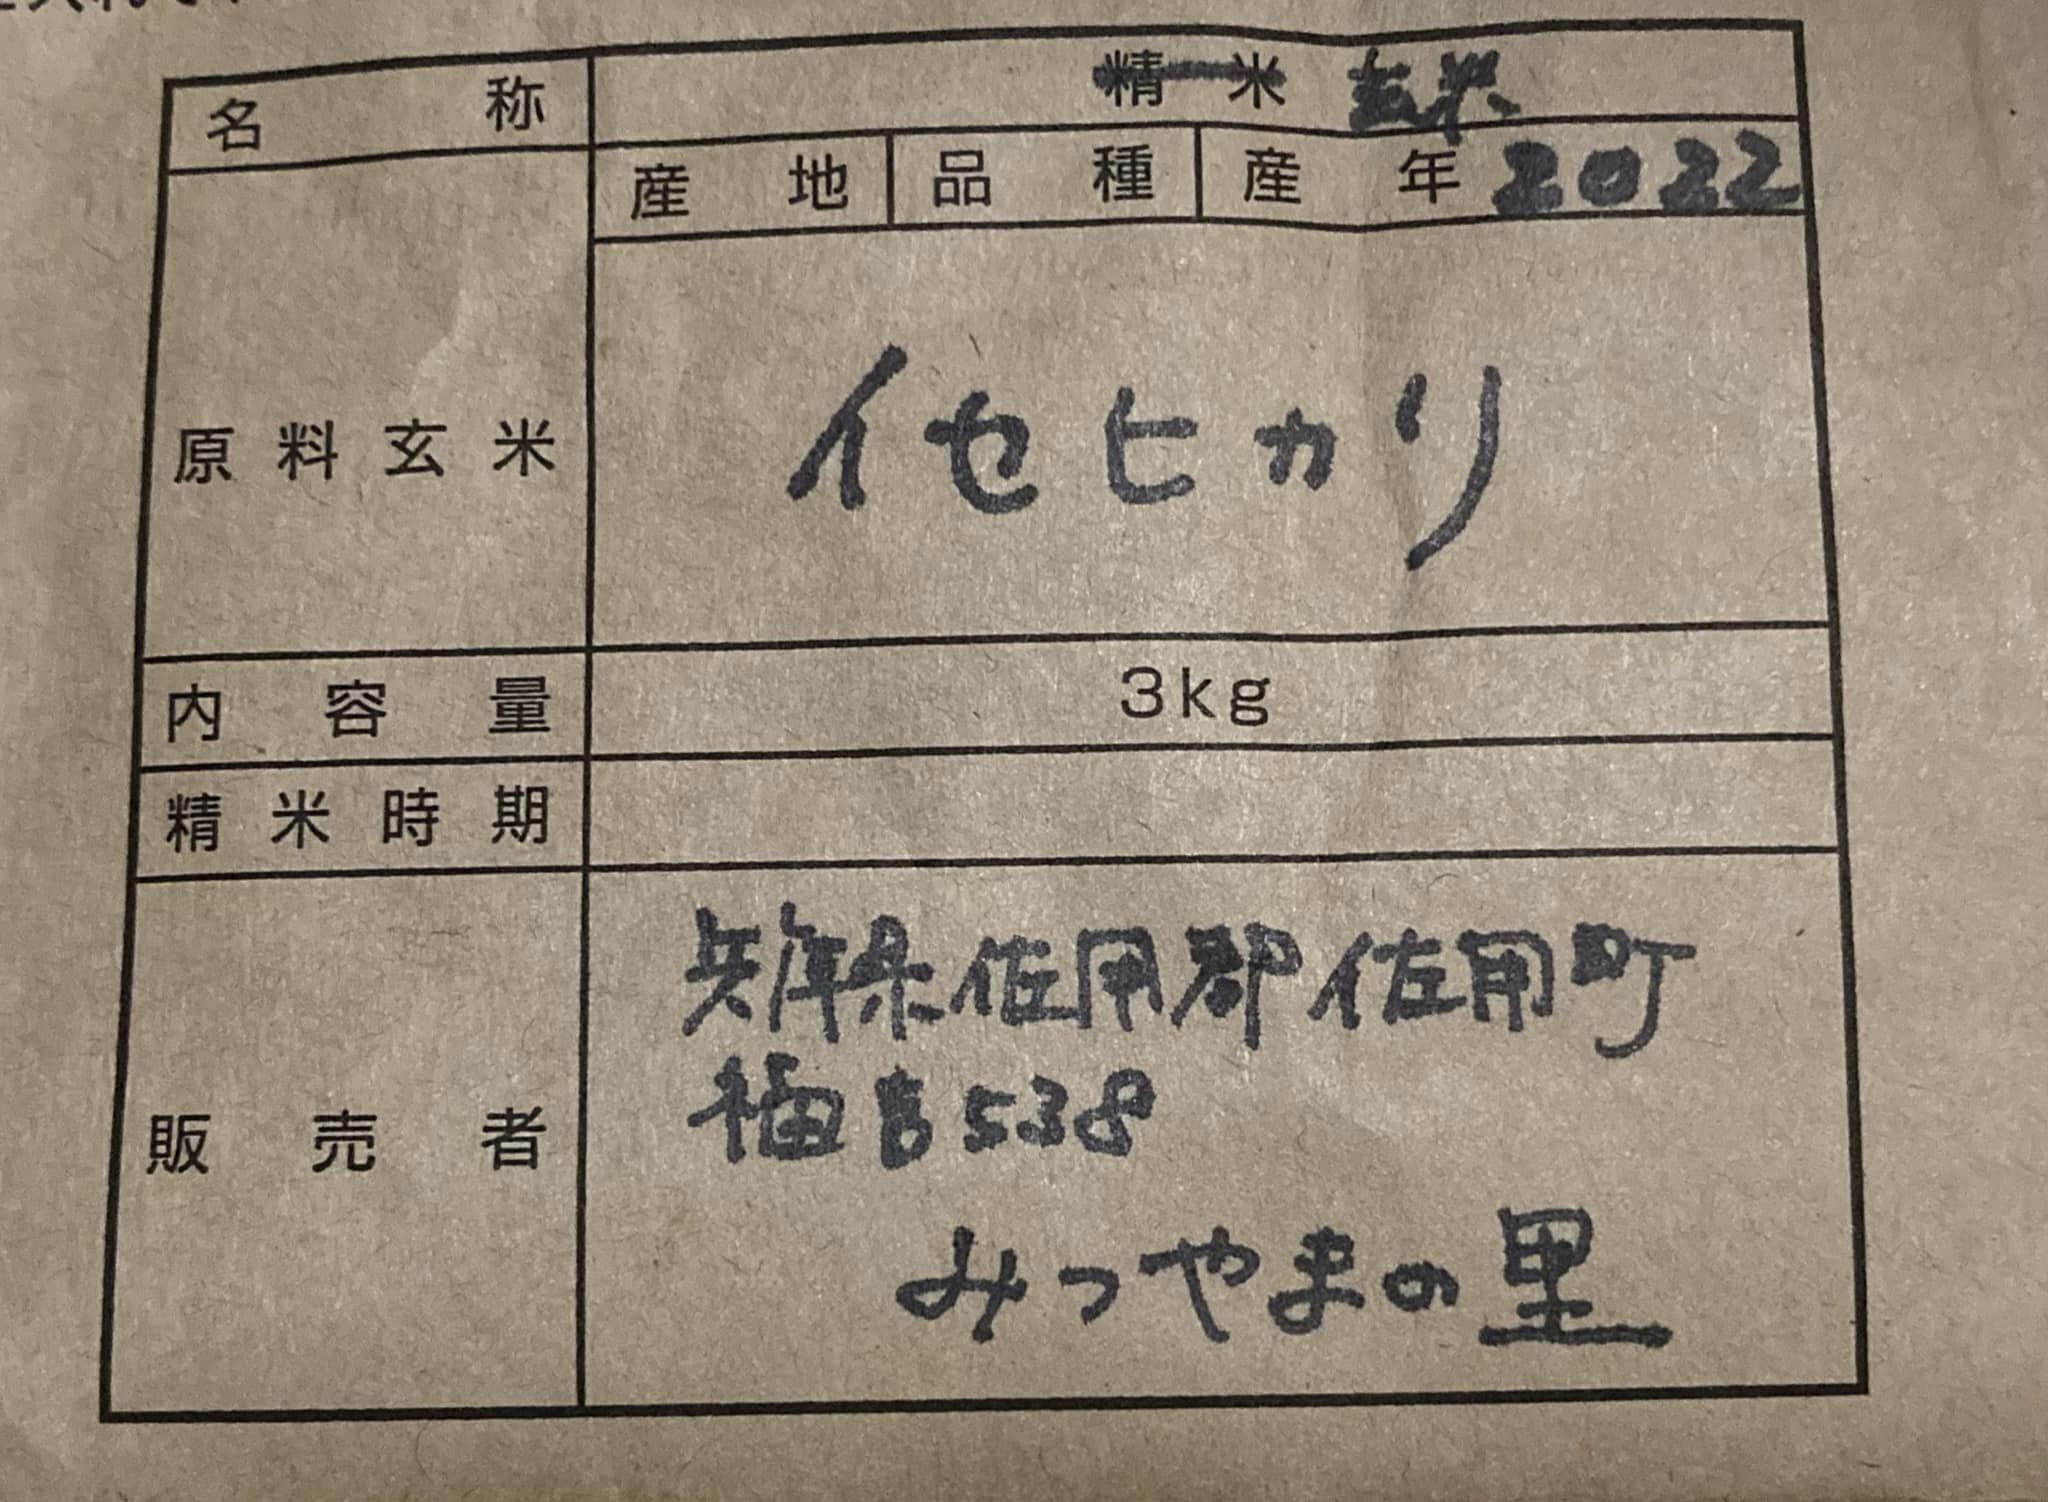 名称 精米 玄米
原料玄米 産地 品種 産年 2022
イセヒカリ
内容量 3kg
精米時期
販売者 兵庫県佐用郡佐用町
福吉538
みつやまの里